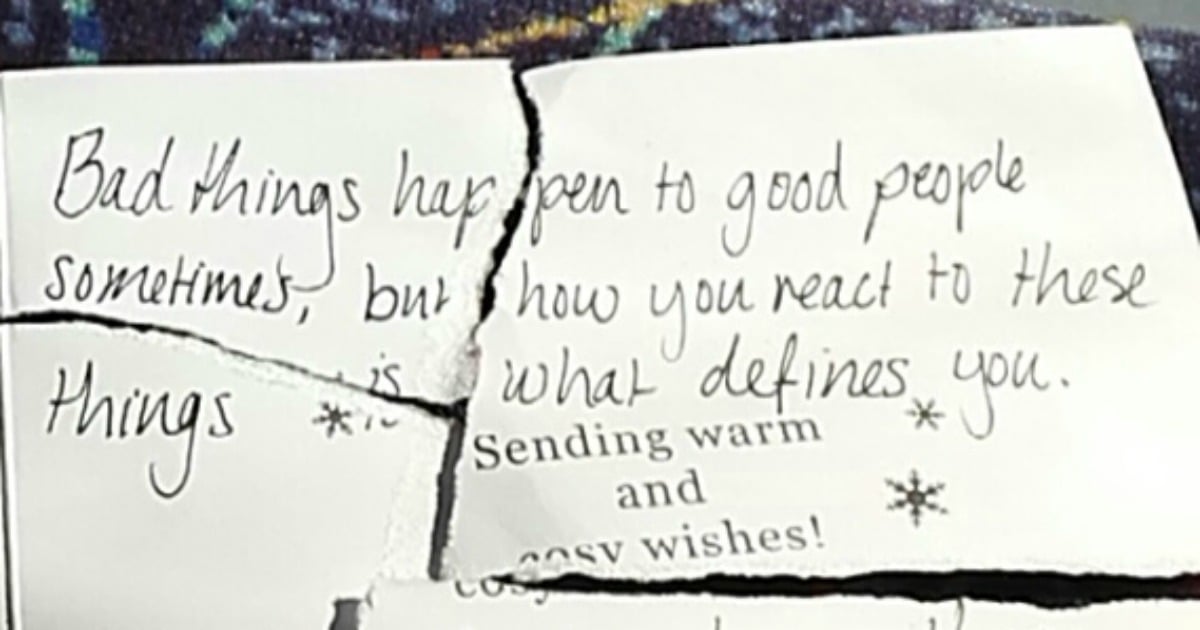 Bad things happen to good people
sometimes, but how you react to these
things is what defines you.
Sending warm
and
cosy wishes!